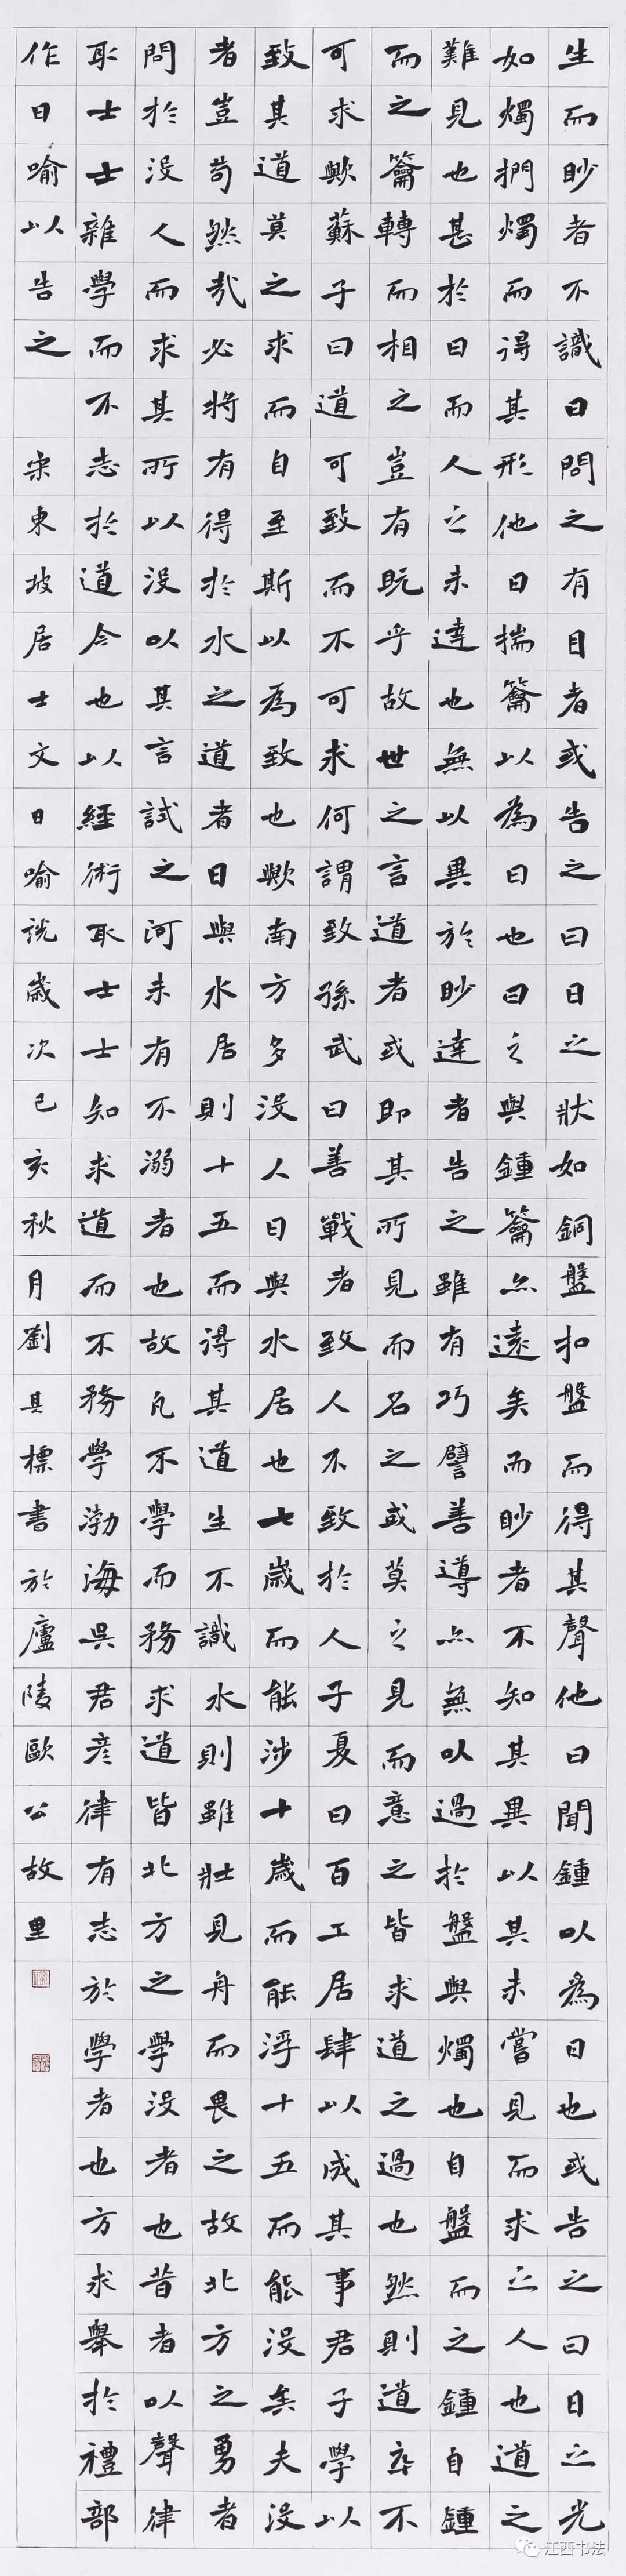 生而眇者不識日問之有目者或告之曰日之狀如銅盤扣盤而得其聲他日聞鍾以為日也或告之曰日之光
如燭捫燭而得其形他日揣籥以為日也日之與鍾籥亦遠矣而眇者不知其異以其未嘗見而求之人也道之
難見也甚於日而人之未達也無以異於眇達者告之雖有巧譬善導亦無以過於盤與燭也自盤而之鍾自鍾
而之籥轉而相之豈有既乎故世之言道者或即其所見而名之或莫之見而意之皆求道之過也然則道卒不
可求歟蘇子曰道可致而不可求何謂致孫武曰善戰者致人不致於人子夏曰百工居肆以成其事君子學以
致其道莫之求而自至斯以為致也歟南方多沒人日與水居也七歲而能涉十歲而能浮十五而能沒矣夫沒
者豈苟然哉必將有得於水之道者日與水居則十五而得其道生不識水則雖壯見舟而畏之故北方之勇者
問於沒人而求其所以沒以其言試之河未有不溺者也故凡不學而務求道皆北方之學沒者也昔者以聲律
取士士雜學而不志於道今也以經術取士士知求道而不務學渤海吳君彥律有志於學者也方求舉於禮部
作日喻以告之 宋東坡居士文日喻說歲次己亥秋月劉其標書於廬陵歐公故里
江西书法